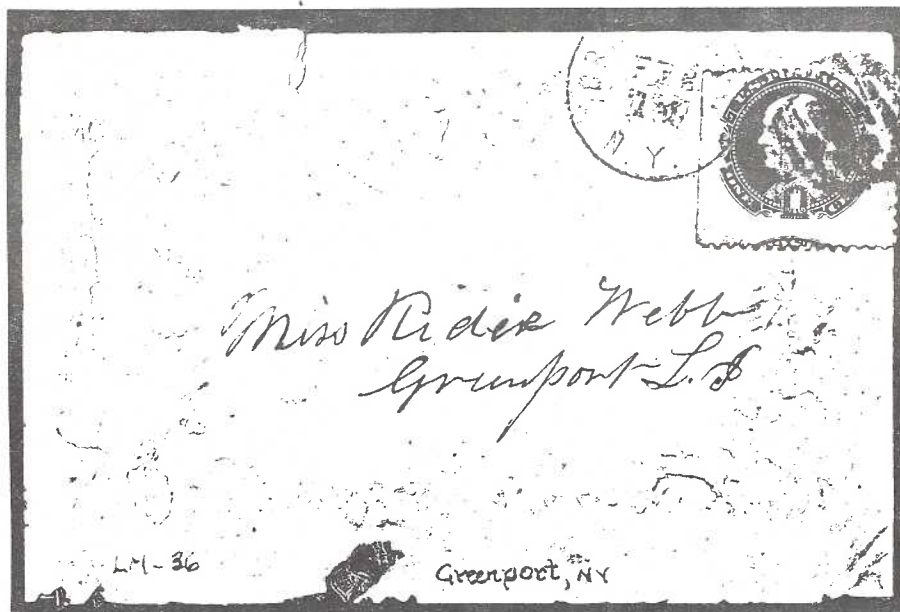 N.Y.
Miss Kidie Webb
Greenport L.I
LM-36
Greenport, NY